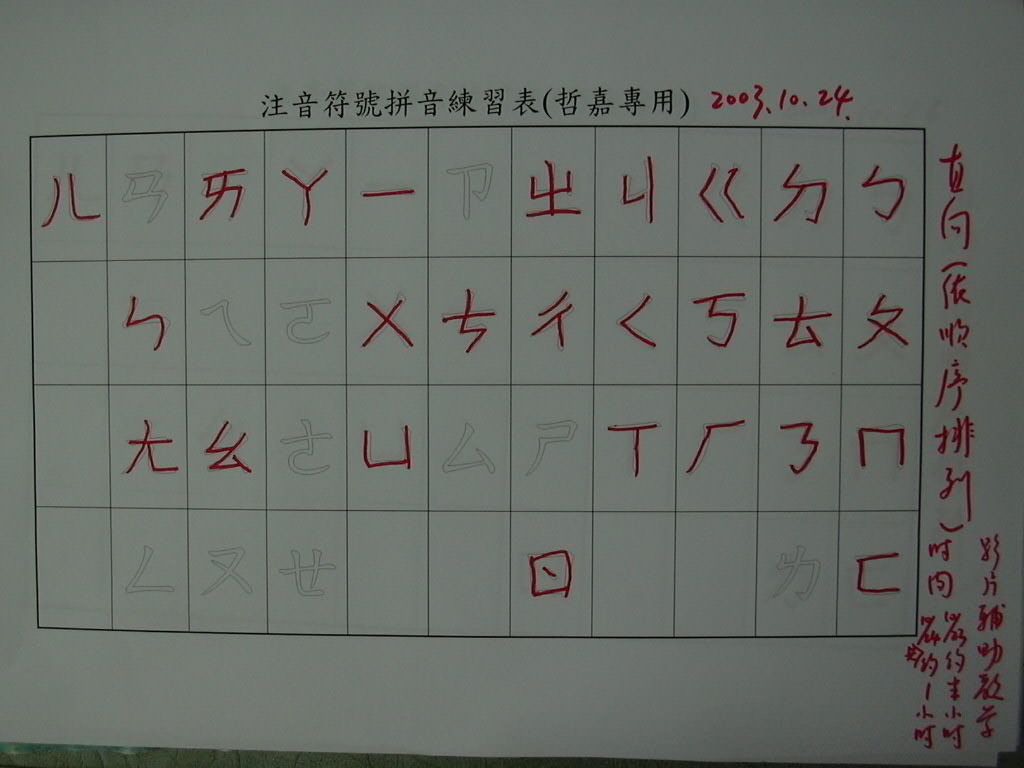 注音符號拼音練習表(哲嘉專用) 2003.10.24.
直向(依順序排列)
ㄅ ㄆ ㄇ ㄈ
ㄉ ㄊ ㄋ ㄌ
ㄍ ㄎ ㄏ
ㄐ ㄑ ㄒ
ㄓ ㄔ ㄕ ㄖ
ㄗ ㄘ ㄙ
ㄧ ㄨ ㄩ
ㄚ ㄛ ㄜ ㄝ
ㄞ ㄟ ㄠ ㄡ
ㄢ ㄣ ㄤ ㄥ
ㄦ
影片輔助教學
時間
10/23約半小時
10/24約1小時